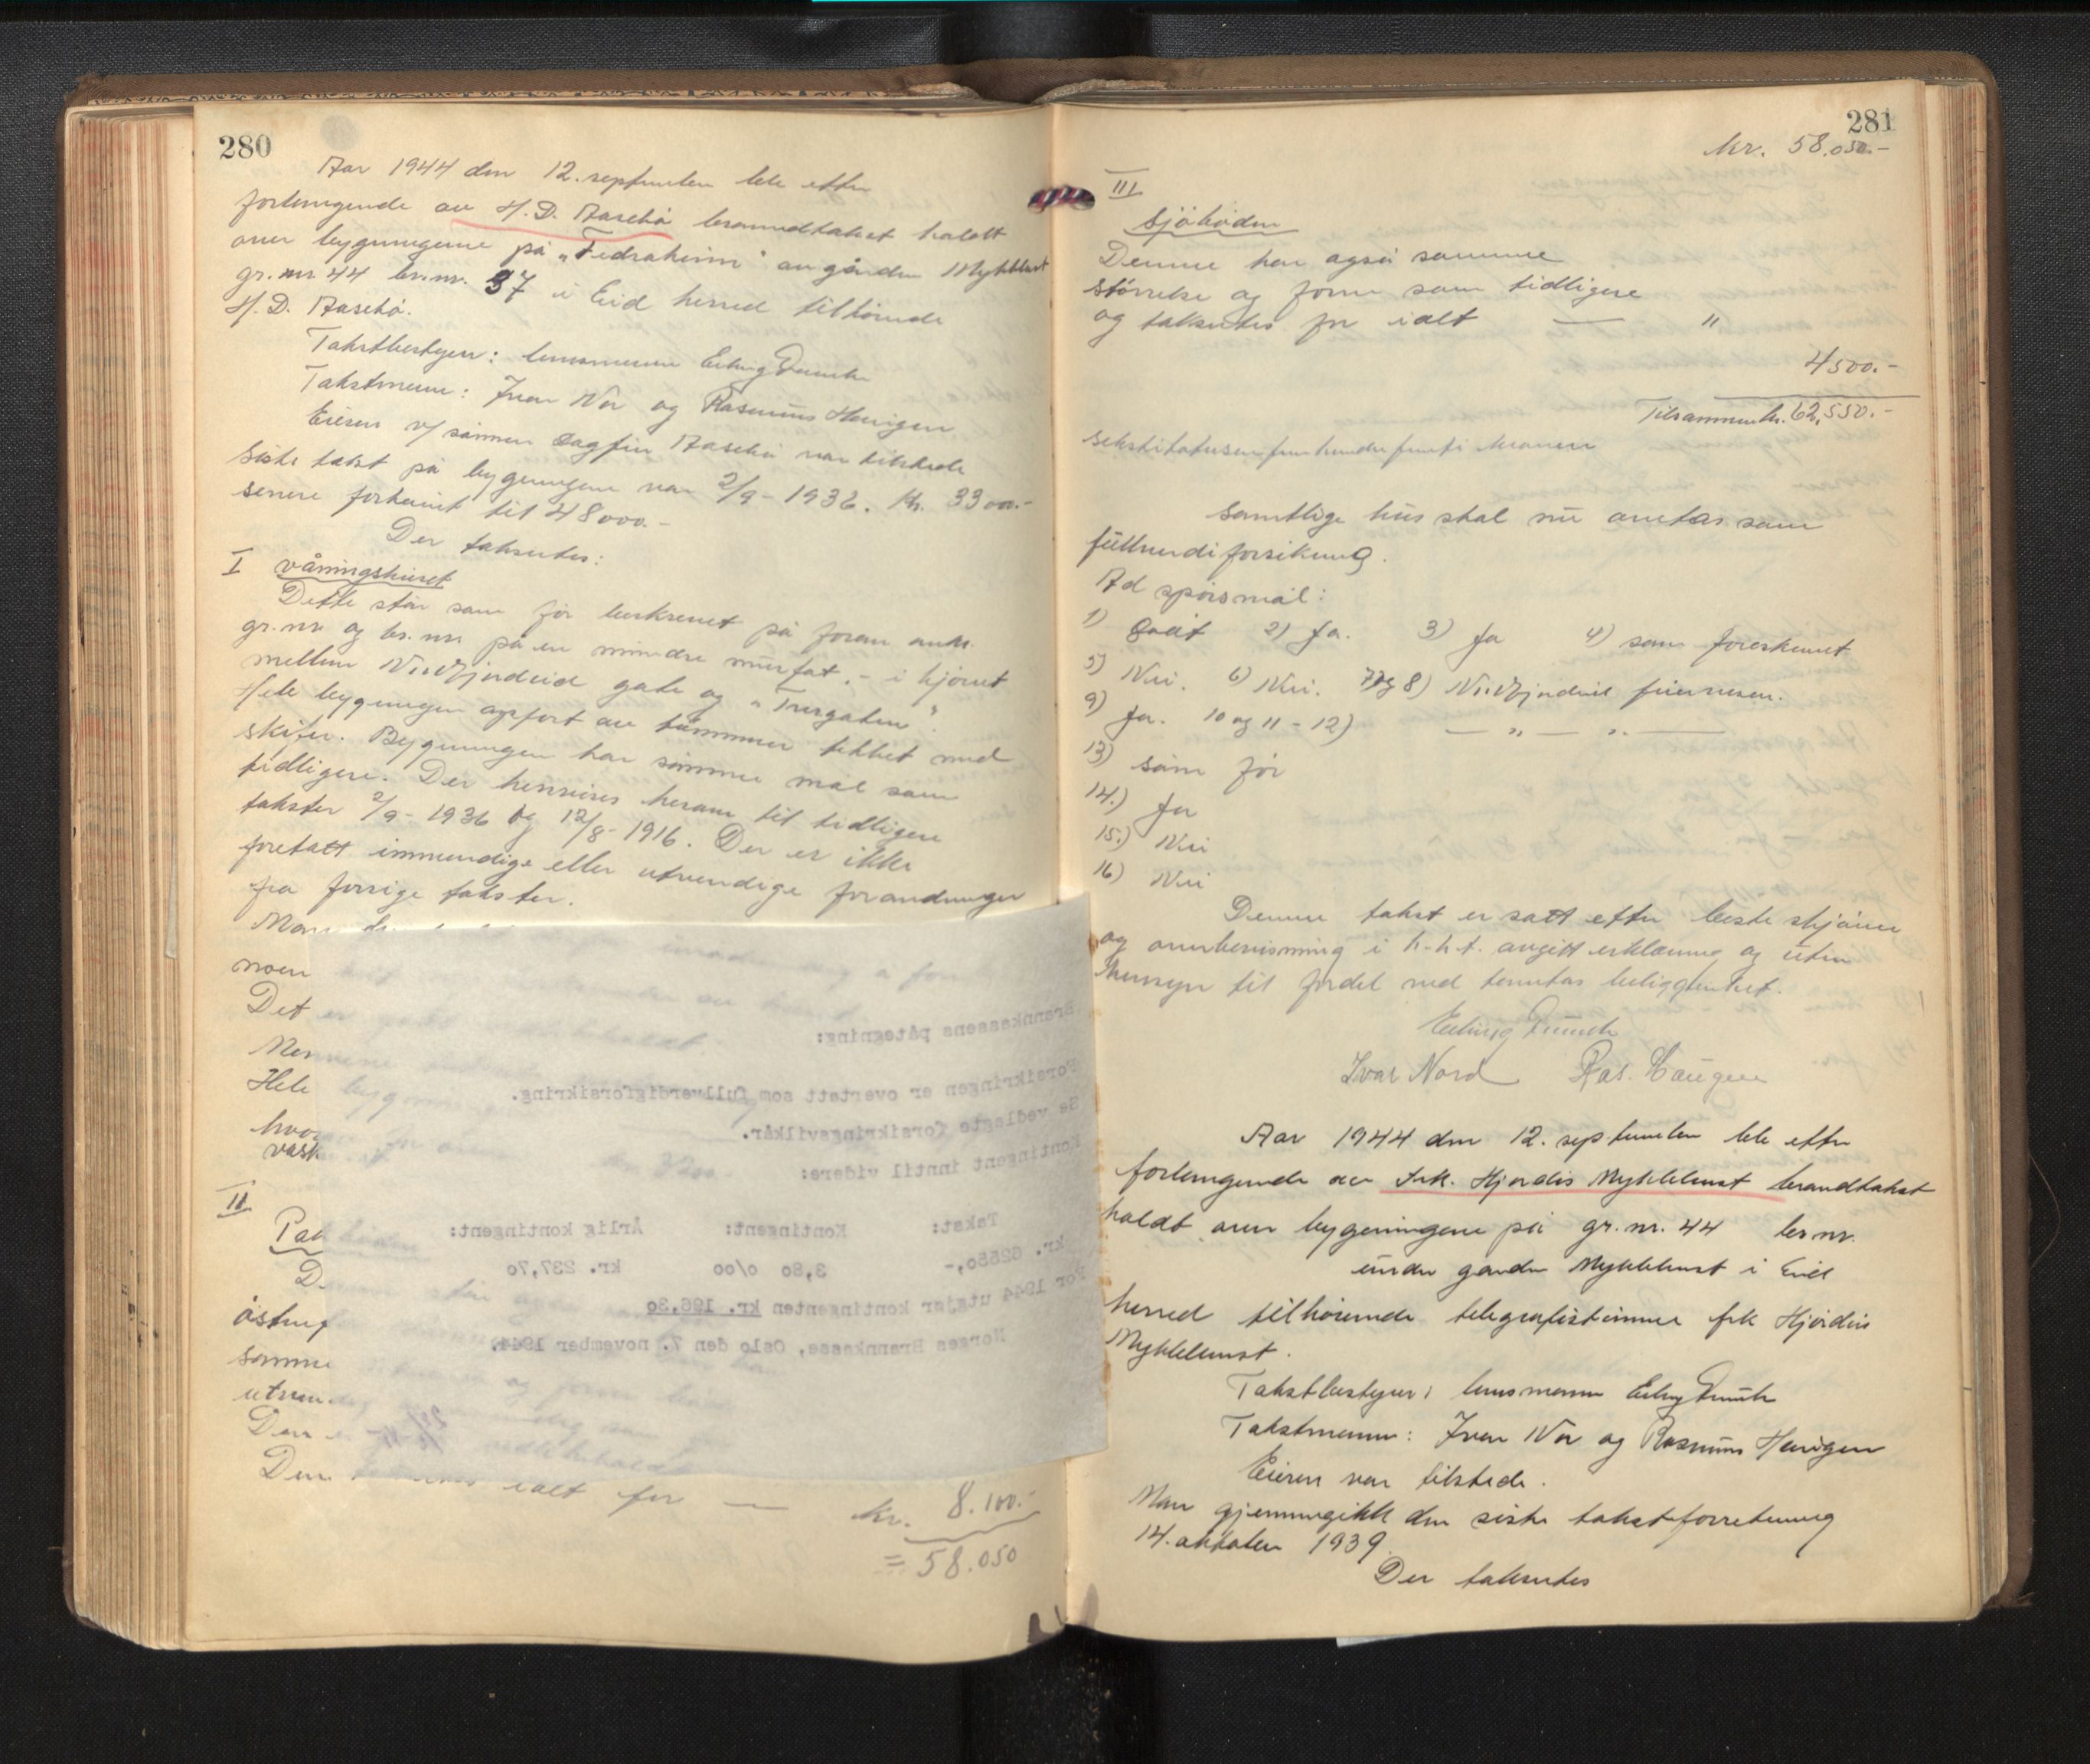 280
Aar 1944 den 12. september ble efter
forlangende av H. D. Aasebø brandtakst holdt
over bygningene på "Fedraheim" av gården Myklebust
gr. nr. 44 br. nr. 37 i Eid herred tilhørende
H. D. Aasebø.
Takstbestyrer: lensmann Erling
Takstmenn: Ivar Nor og Rasmus Haugen
Eieren v/ sønnen Dagfin Aasebø var tilstede
Siste takst på bygningene var 2/9 - 1936. Kr. 33000.-
senere forhøiet til 48000.-
Der takseres:
I våningshuset
Dette står som før beskrevet på foran anke.
gr. nr og br. nr. på en mindre murfat. - i hjørnet
mellem Nordfjordeid gate og "Tverrgaten".
Hele bygningen opført av tømmer tekket med
skifer. Bygningen har samme mål som
tidligere. Der henvises herom til tidligere
takster 2/9 - 1936 og 12/8 - 1916. Der er ikke
foretatt innvendige eller utvendige forandringer
fra forrige takster.
Man
noen
Det
Hele
hvo
vask
II
Pak
D
østre
samme
utven
Den
Den ialt for — kr. 8.100.-
= 58.050
Brannkassens påtegning:
Forsikringen er overtatt som fullverdigforsikring.
Se vedlagte forsikringsvilkår.
Kontingent inntil videre:
Takst: Kontingent: Årlig kontingent:
kr. 62550,- 3,80 o/oo kr. 237,70
For 1944 utgjør kontingenten kr. 196,30
Norges Brannkasse, Oslo den 7. november 1944.
281
kr. 58.050.-
III
Sjöboden
Denne har også samme
størrelse og form som tidligere
og takseres for ialt — "
4500.-
Tilsammen kr. 62,550.-
sekstitotusenfemhundrefemti kroner
Samtlige hus skal nu ansettes som
fullverdiforsikring.
Ad spørsmål:
1) Godt 2) Ja. 3) Ja 4) som foreskrevet
5) Nei. 6) Nei. 7 og 8) Nordfjordeid feievesen.
9) Ja. 10 og 11 - 12) — " — " —
13) som før
14.) Ja
15.) Nei
16) Nei
Denne takst er satt efter beste skjønn
og overbevisning i h.h.t. avgitt erklæring og uten
hensyn til fordel ved tomtens beliggenhet.
Erling
Ivar Nord Ras. Haugen
Aar 1944 den 12. september ble efter
forlangende av Frk. Hjørdis Myklebust brandtakst
holdt over bygningene på gr. nr. 44 br. nr.
under gården Myklebust i Eid
herred tilhørende telegrafistinne frk Hjørdis
Myklebust.
Takstbestyrer: lensmann Erling
Takstmenn: Ivar Nor og Rasmus Haugen
Eieren var tilstede.
Man gjennemgikk den siste takstforretning
14. oktober 1939.
Der takseres